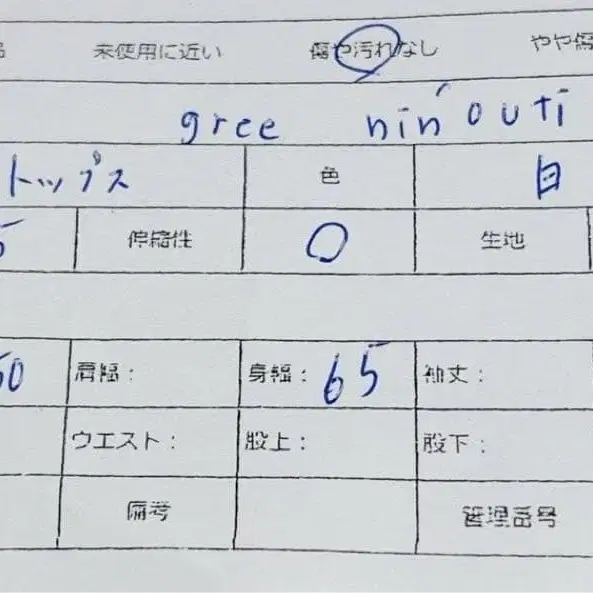 未使用に近い 傷や汚れなし やや傷
gree nin'outi
トップス 色 白
5 伸縮性 〇 生地
50 肩幅： 身幅：65 袖丈：
ウエスト： 股上： 股下：
備考 管理番号